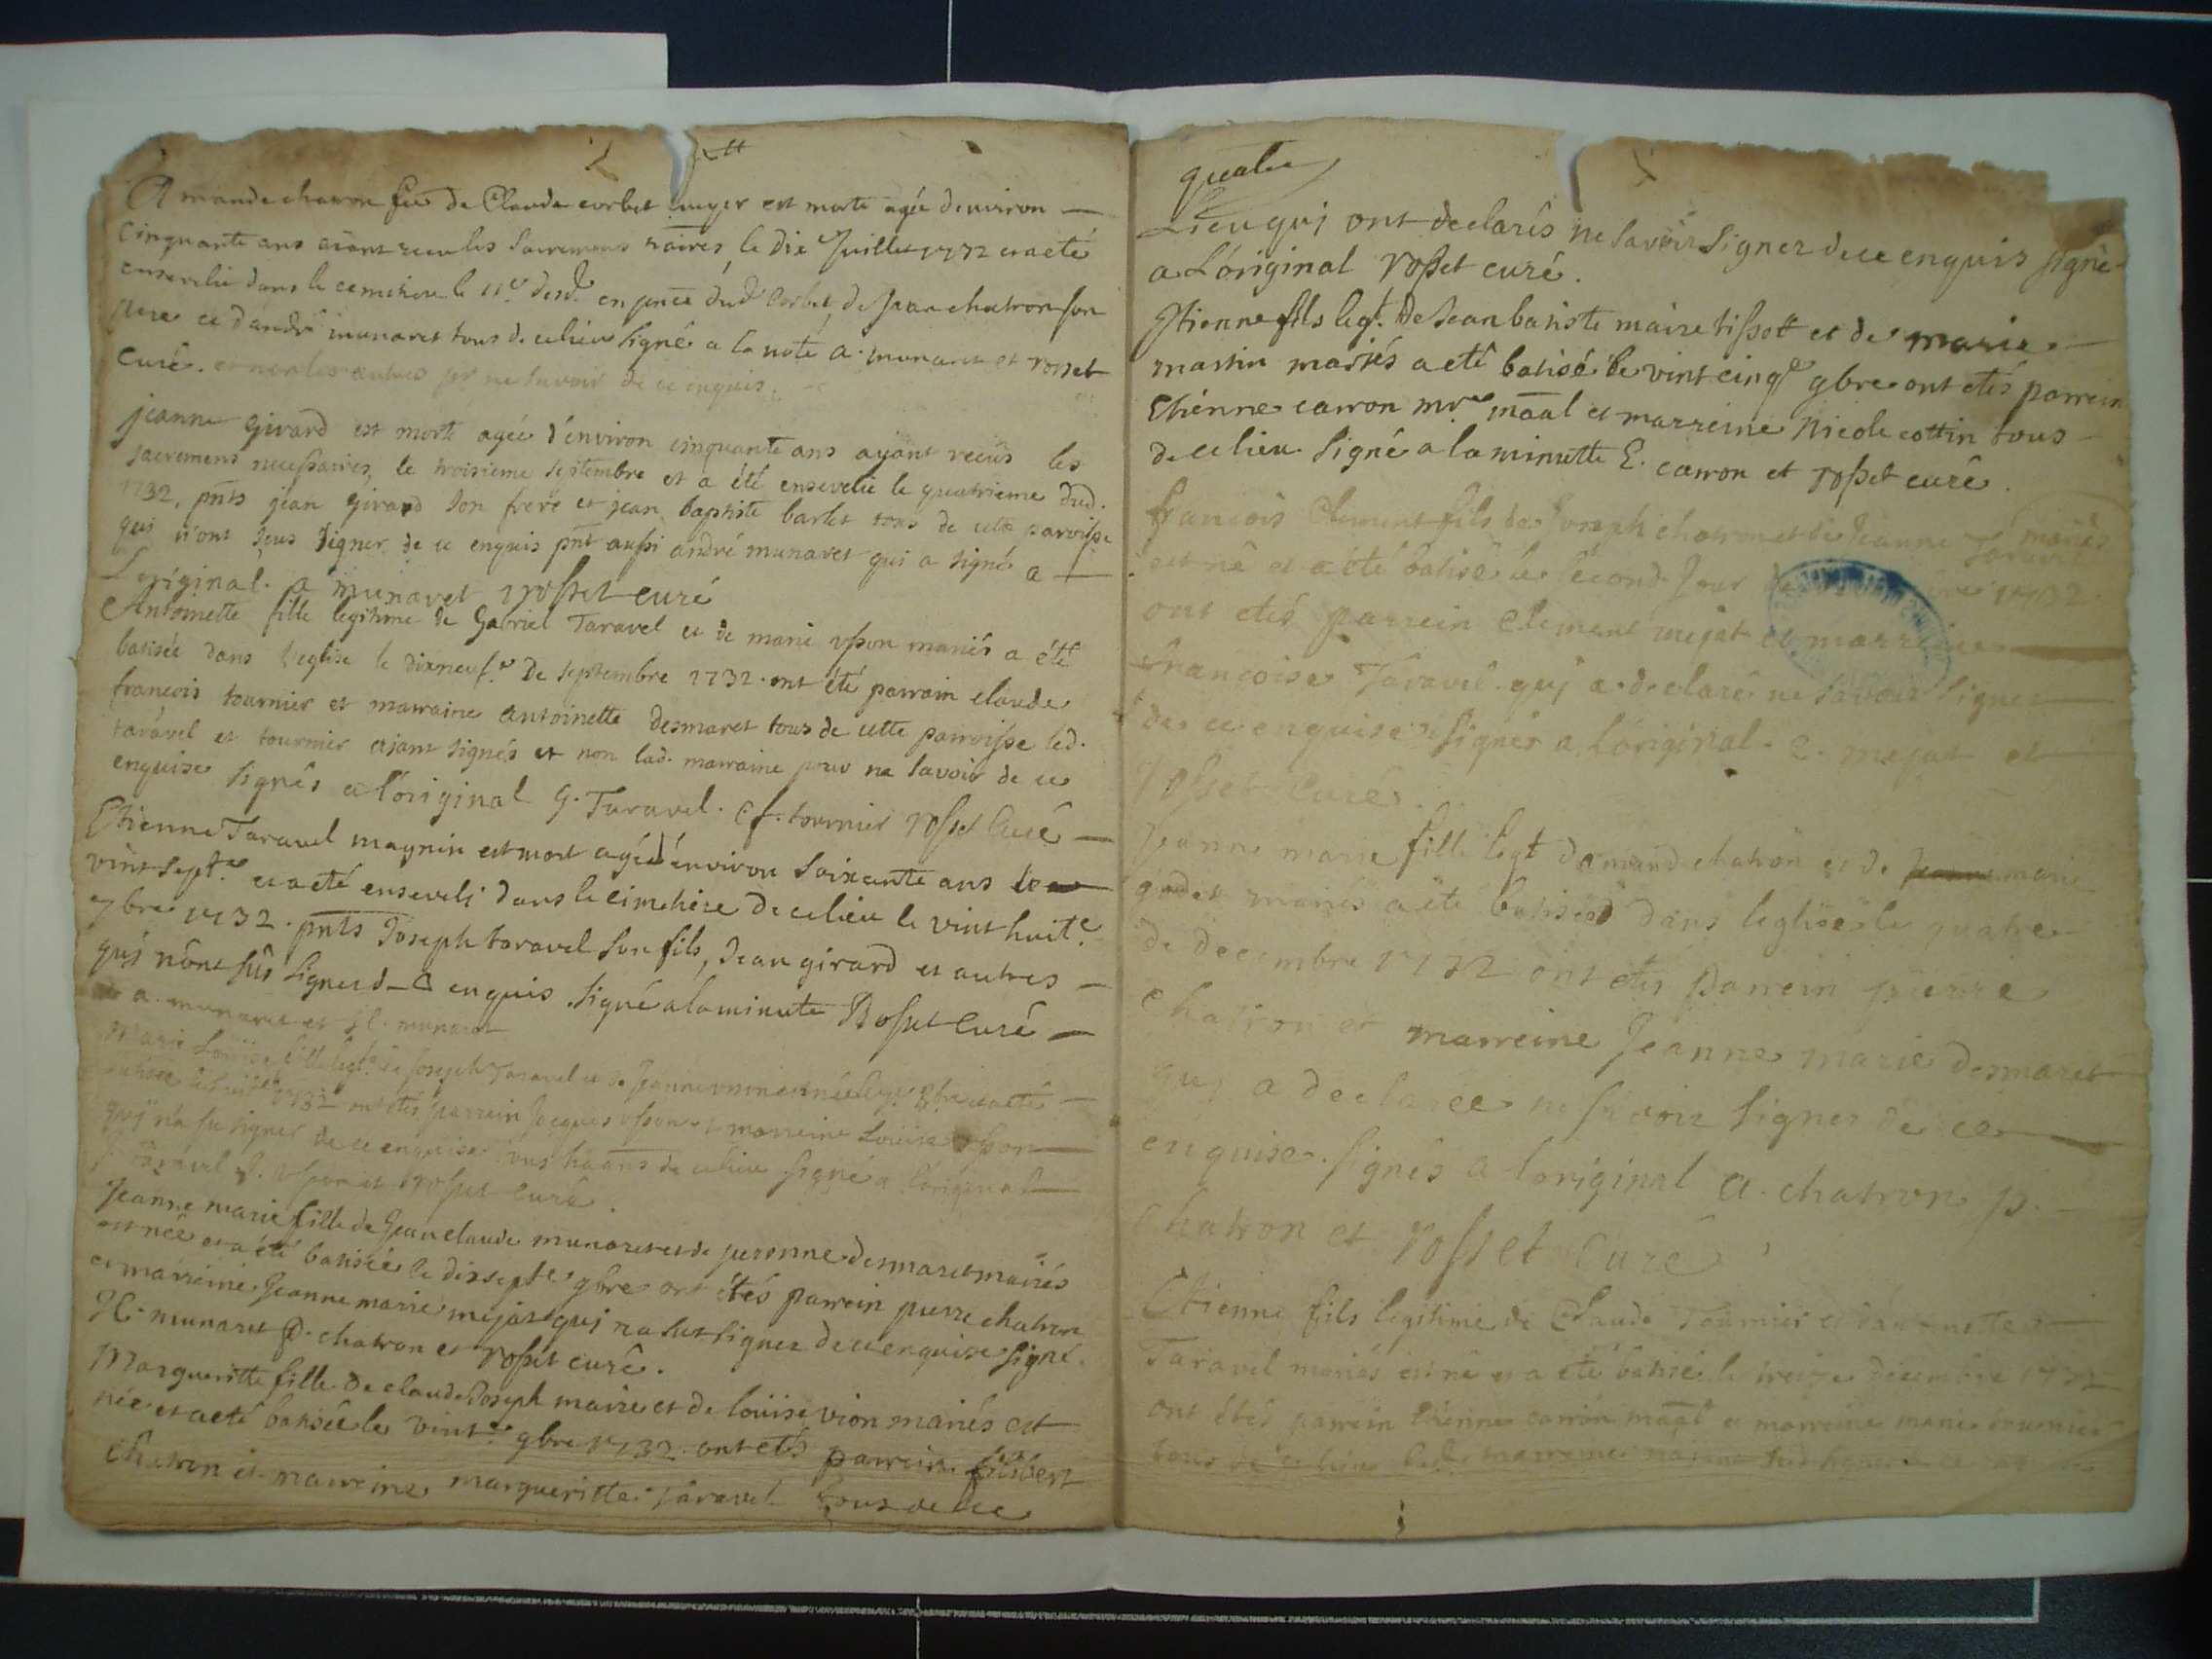 Amande chatron fee de Claude corbet est morte agée denviron
Cinquante ans aiant receu les sacremens naires, le dix Juillet 1732 et a eté
ensevelie dans le cemitiere le 11e. desd. en pnce dud. Corbet, de Jean chatron son
pere et d'andré munaret tous de ce lieu signé a la note a. munaret et rosset
curé. et non les autres pr ne savoir de ce enquis.
jeanne girard est morte agée d'environ cinquante ans ayant recüs les
sacremens necessaires, le troisieme septembre et a été ensevelie le quatrieme dud.
1732, pnts jean girard son frere et jean baptiste barlet tous de cette paroisse
qui n'ont sçus signer de ce enquis pnt aussi andré munaret qui a signé a
L'original. a munaret rosset curé
Antoinette fille legitime de Gabriel Taravel et de marie usson mariés a été
batisée dans l'eglise le dixneufe. De septembre 1732. ont été parrain claude
françois tournier et marraine antoinette desmaret tous de cette parroisse led.
taravel et tournier aiant signés et non lad. marraine pour ne savoir de ce
enquise signés a l'original G. Taravel. C f. tournier rosset Curé
Etienne Taravel magnin est mort agé d'environ soixante ans le
vint septe. et a eté enseveli dans le cimetiere de ce lieu le vint huite.
7bre 1732. pnts Joseph taravel son fils, Jean girard et autres
qui n'ont sûs signer de ce enquis. signé a la minute Rosset Curé
a. munaret et munaret
Marie Loüise fille legt. de Joseph Taravel et de Jeanne née et a eté
batisée 1732 ont etés parrein Jacques usson et marreine Loüise usson
qui n'a su signer de ce enquise tous de ce lieu signé a l'original
Taravel J. usson et rosset curé.
Jeanne marie fille de Jean claude munaret et de peronne desmaret mariés
est née et a été batisée le dixsepte 9bre ont étés parrein pierre chatron
et marreine Jeanne marie mejat qui n'a sut signer de ce enquise signé
munaret P. chatron et rosset curé.
Margueritte fille de claude Joseph maire et de loüise vion mariés est
née et a eté batisée le vinte. 9bre 1732. ont etés parrein
chatron et marreine margueritte taravel tous de ce
quatre
Lieu qui ont declarés ne savoir signer de ce enquis signé
a L'original rosset curé.
Etienne fils legt. de Jean batiste maire tissott et de marie
martin mariés a eté batisé le vint cinqe 9bre ont etés parrein
Etienne carron mre maal et marreine Nicole cottin tous
de ce lieu signé a la minutte E. carron et rosset curé.
francois Clement fils de Joseph chatron et de Jeanne Taravel mariés
est né et a eté batisé le second Jour 1732.
ont etés parrein Clement mejat et marreine
françoise Taravel qui a declaré ne savoir signer
de ce enquise signés a L'original. C. mejat et
rosset curé.
Jeanne marie fille legt d'amand chatron et de Jeanne marie
godet mariés a eté batisée dans leglise le quatre
de Decembre 1732 ont etés parrein pierre
chatron et marreine Jeanne marie desmaret
qui a declarée ne savoir signer de ce
enquise. signés a loriginal a. chatron p.
chatron et rosset Curé
Etienne fils legitime de Claude Tournier et d'antoinette
Taravel mariés est né et a eté batisé le treize decembre 1732
ont étés parrein Etienne carron maal et marreine marie tournier
tous de ce lieu lad. marreine signer de ce